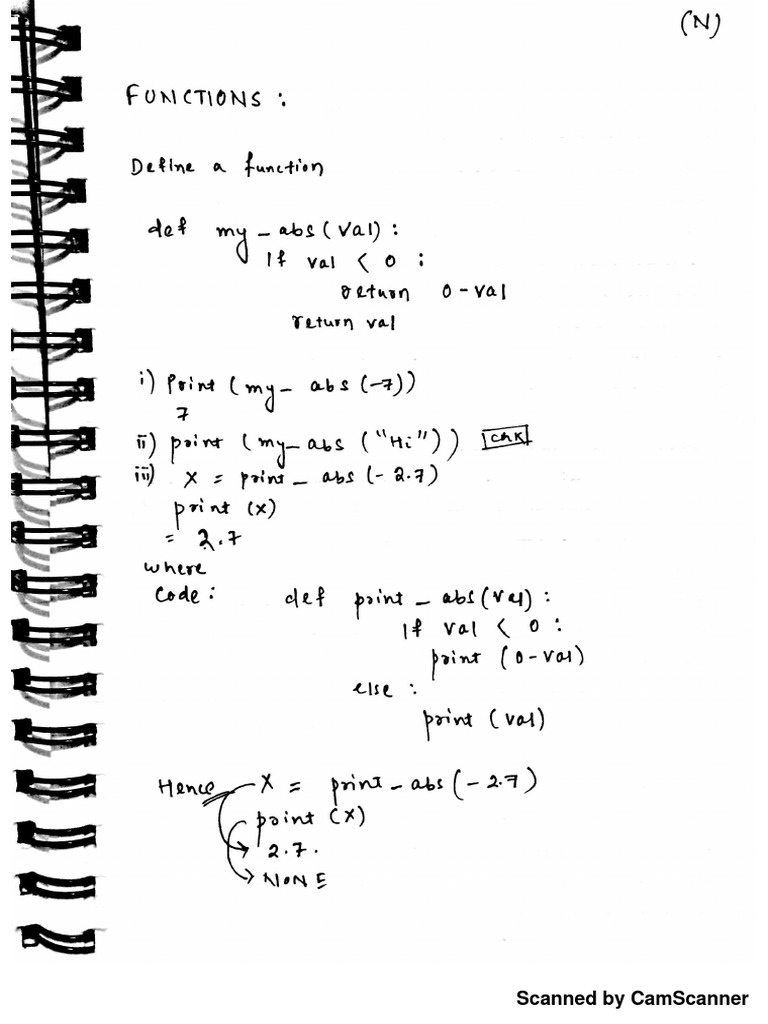 (N)
FUNCTIONS :
Define a function
def my_abs(val):
If val < 0 :
return 0-val
return val
i) Print (my_abs (-7))
7
ii) print (my_abs ("Hi"))
iii) x = print_abs (-2.7)
print (x)
= 2.7
where
Code: def print_abs(val):
If val < 0 :
print (0-val)
else :
print (val)
Hence x = print_abs (-2.7)
print (x)
2.7.
NONE
Scanned by CamScanner